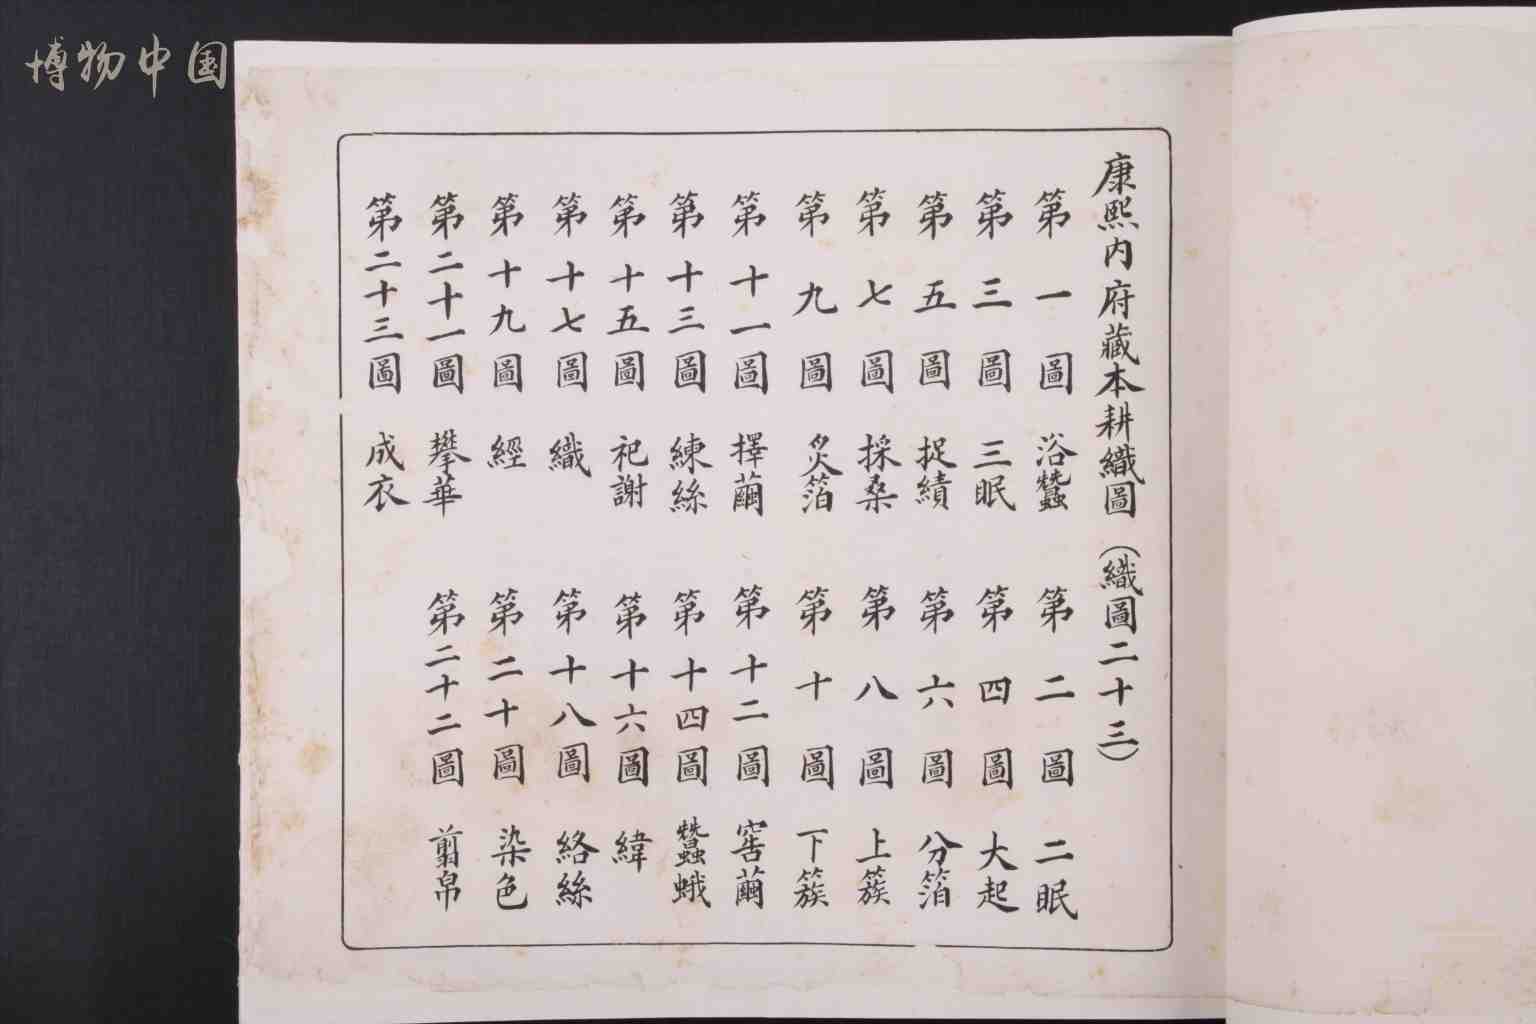 博物中国
康熙内府藏本耕織圖（織圖二十三）
第一圖 浴蠶 第二圖 二眠
第三圖 三眠 第四圖 大起
第五圖 捉績 第六圖 分箔
第七圖 採桑 第八圖 上簇
第九圖 炙箔 第十圖 下簇
第十一圖 擇繭 第十二圖 窖繭
第十三圖 練絲 第十四圖 蠶蛾
第十五圖 祀謝 第十六圖 緯
第十七圖 織 第十八圖 絡絲
第十九圖 經 第二十圖 染色
第二十一圖 攀華 第二十二圖 剪帛
第二十三圖 成衣